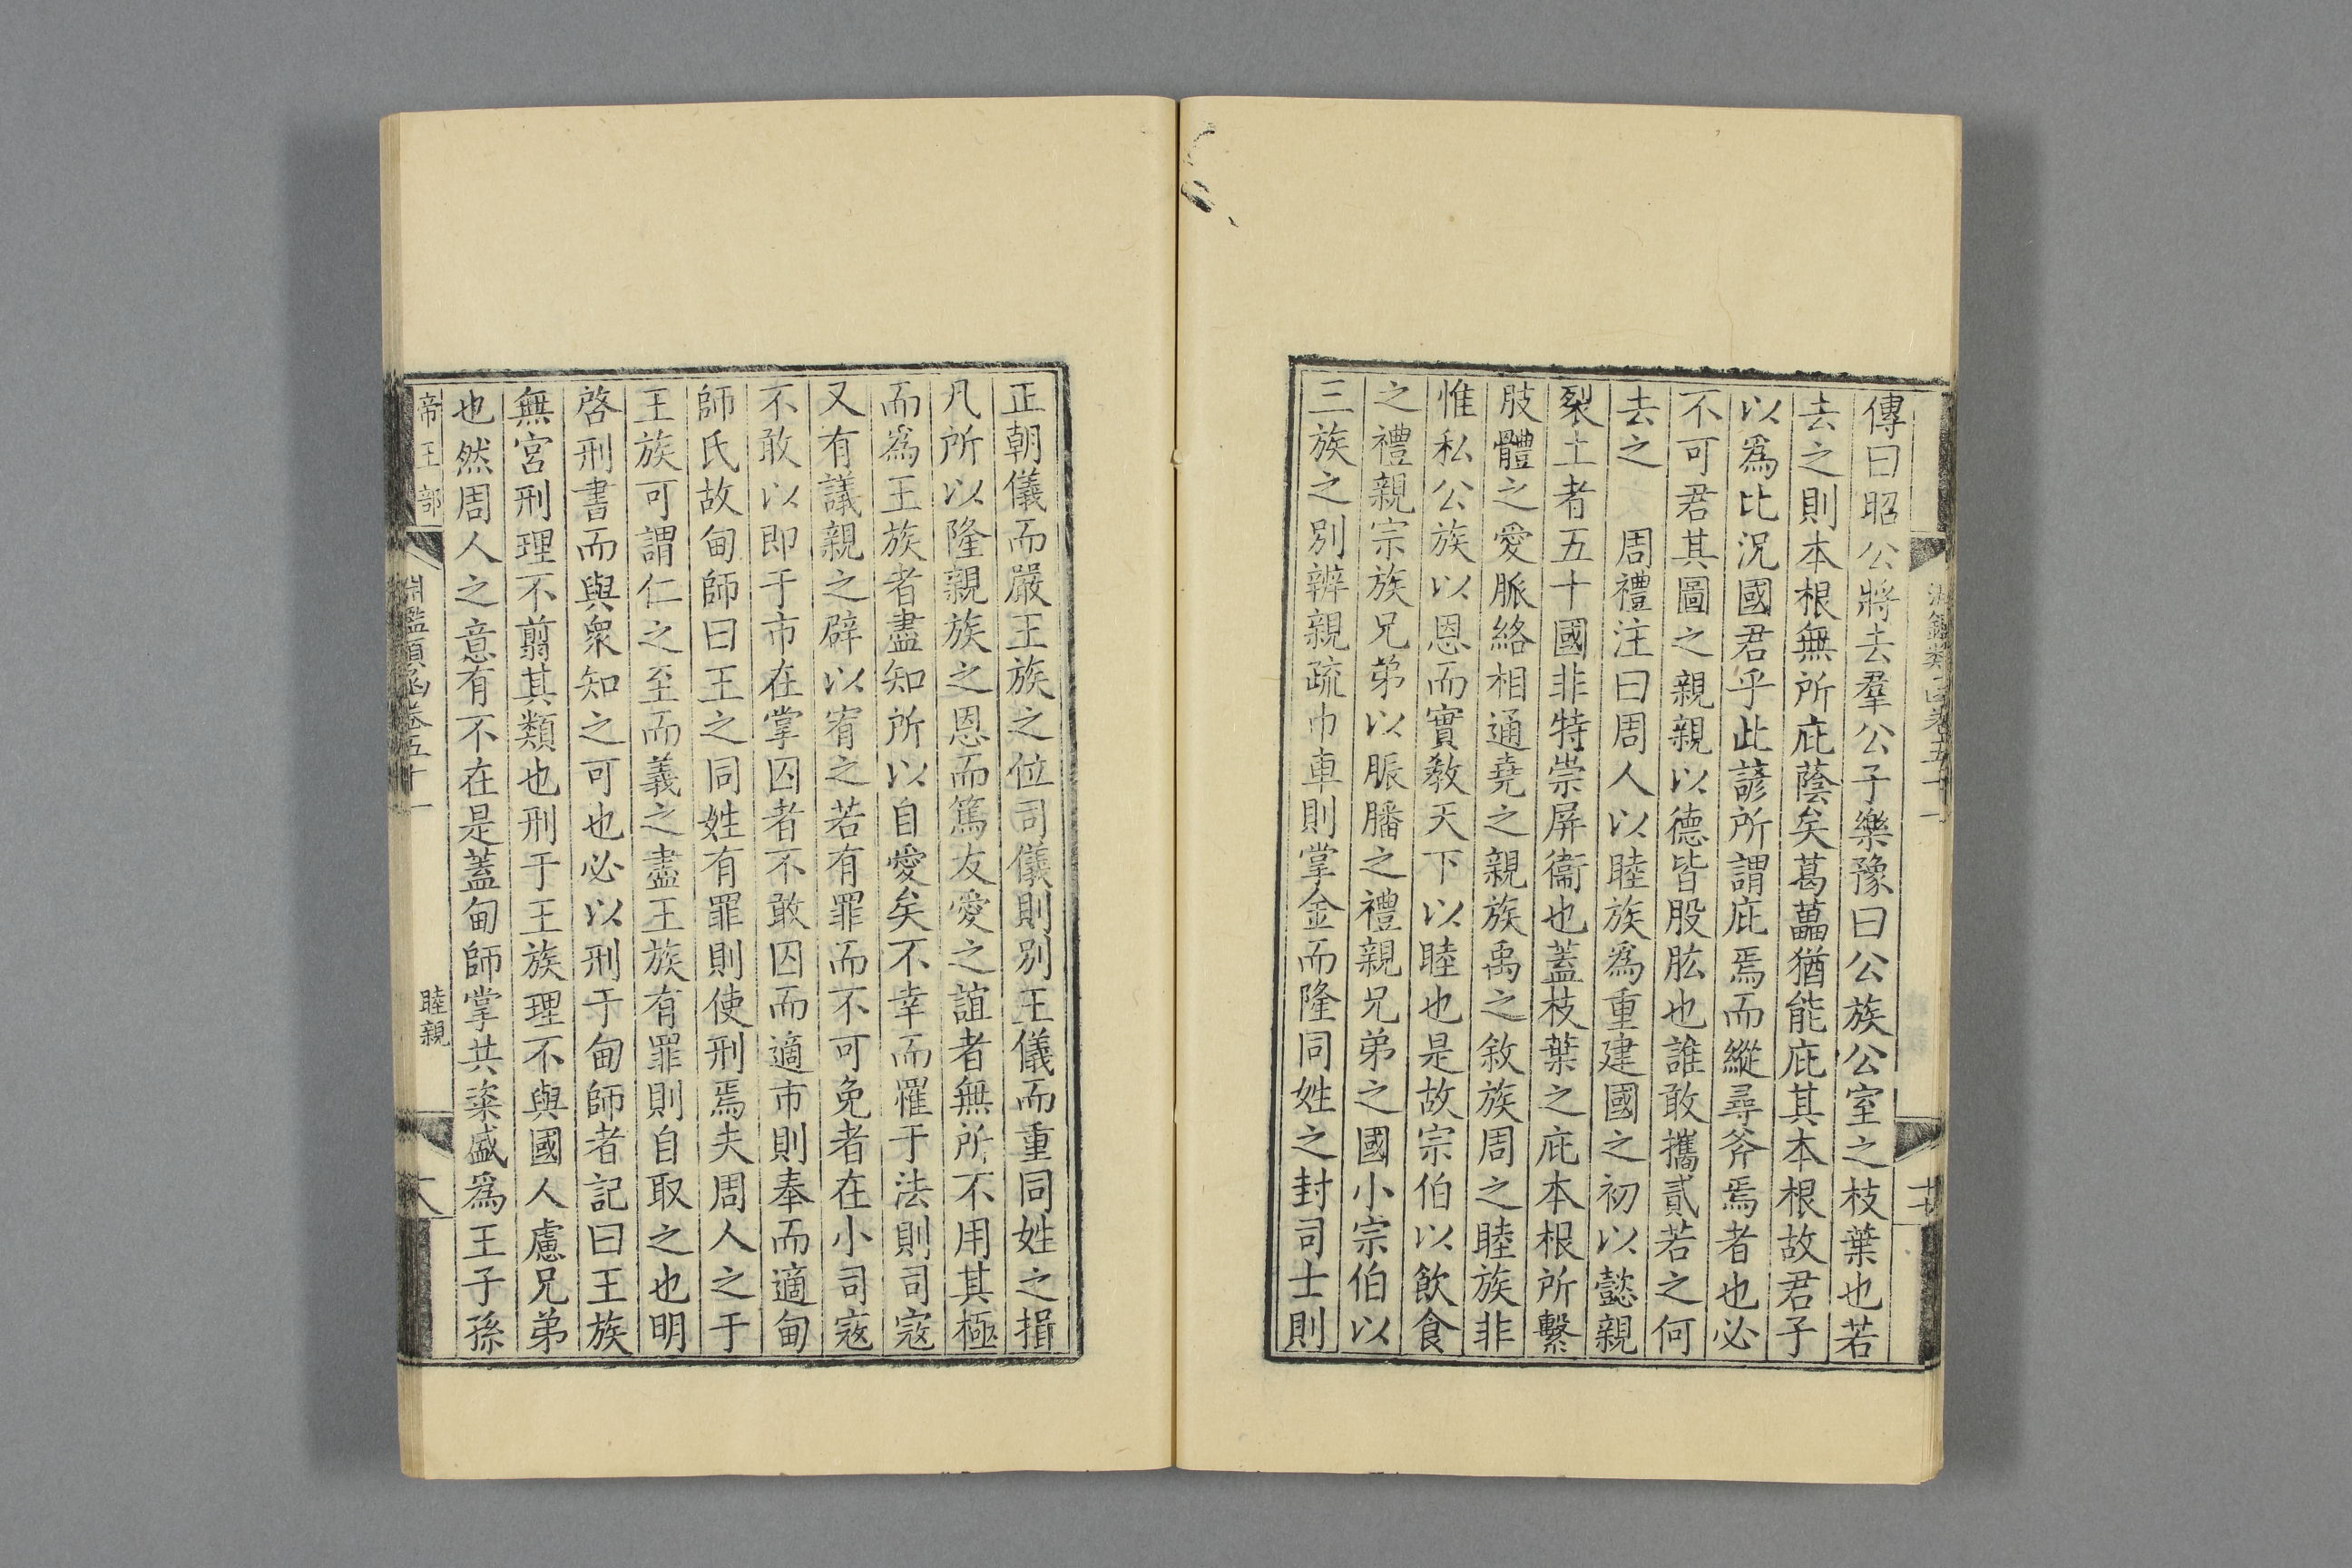 傳曰昭公將去羣公子樂豫曰公族公室之枝葉也若
去之則本根無所庇蔭矣葛藟猶能庇其本根故君子
以爲比況國君乎此諺所謂庇焉而縱尋斧焉者也必
不可君其圖之親親以德皆股肱也誰敢攜貳若之何
去之　周禮注曰周人以睦族爲重建國之初以懿親
裂土者五十國非特崇屏衞也蓋枝葉之庇本根所繫
肢體之愛脈絡相通堯之親族禹之敘族周之睦族非
惟私公族以恩而實教天下以睦也是故宗伯以飲食
之禮親宗族兄弟以脤膰之禮親兄弟之國小宗伯以
三族之別辨親疏巾車則掌金而隆同姓之封司士則
正朝儀而嚴王族之位司儀則別王儀而重同姓之揖
凡所以隆親族之恩而篤友愛之誼者無所不用其極
而爲王族者盡知所以自愛矣不幸而罹于法則司寇
又有議親之辟以宥之若有罪而不可免者在小司寇
不敢以即于市在掌囚者不敢囚而適市則奉而適甸
師氏故甸師曰王之同姓有罪則使刑焉夫周人之于
王族可謂仁之至而義之盡王族有罪則自取之也明
啓刑書而與衆知之可也必以刑于甸師者記曰王族
無宮刑理不翦其類也刑于王族理不與國人慮兄弟
也然周人之意有不在是蓋甸師掌共粢盛爲王子孫
帝王部
淵鑑類函卷五十一
睦親